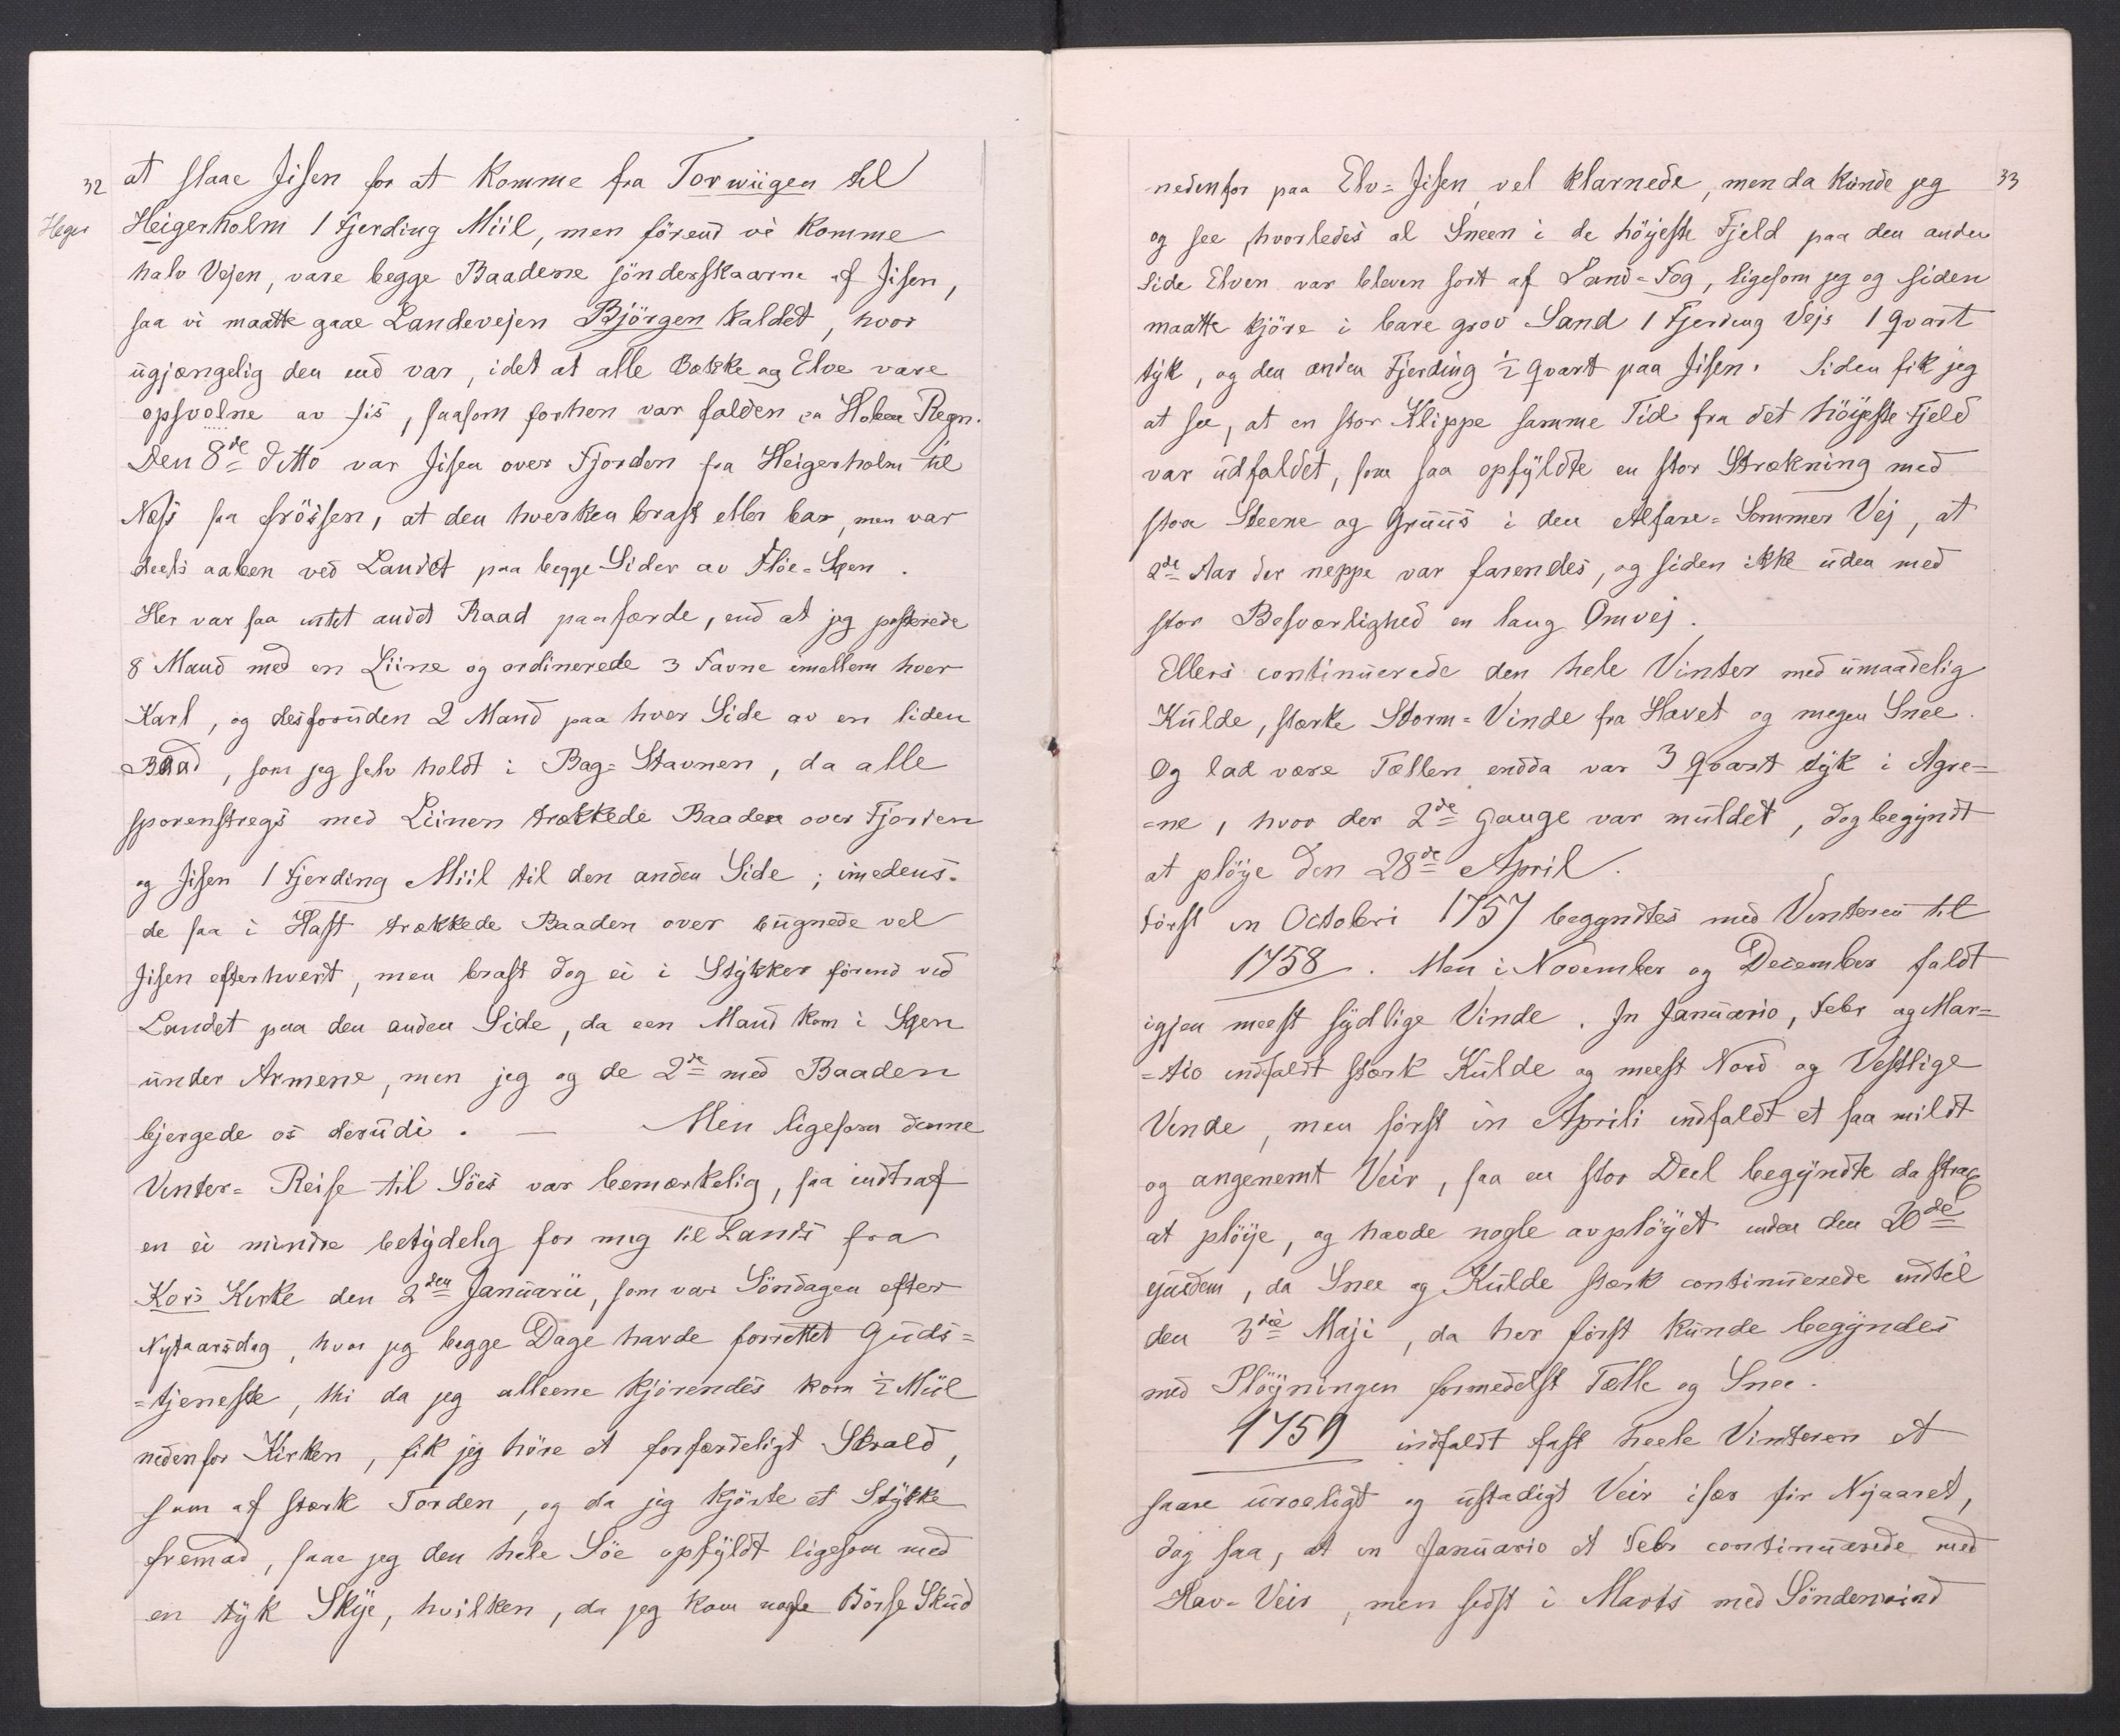 32
at slaae Jisen for at komme fra Torwiigen til
Heger
Heigerholm 1 Fjerding Miil, men förend vi komme
halv Vejen, vare begge Baadene jönderskaarne af Jisen,
saa vi maatte gaae Landevejen Björgen kaldet, hvor
ugjængelig den end var, idet at alle Bække og Elve vare
opsvolne av Jis, saasom forhen var falden en Hoben Regn.
Den 8de Ditto var Jisen over Fjorden fra Heigerholm til
Næss saa frössen, at den hverken brast eller bar, men var
deels aaben ved Landet paa begge Sider av Flöe-Søen.
Her var saa intet andet Raad paafærde, end at jeg posterede
8 Mand med en Liine og ordinerede 3 Favne imellem hver
Karl, og desforuden 2 Mand paa hver Side av en liden
Baad, som jeg selv holdt i Bag-Stavnen, da alle
sporenstregs med Liinen trækkede Baaden over Fjorden
og Jisen 1 Fjerding Miil til den anden Side; imedens
de saa i Hast trækkede Baaden over bugnede vel
Jisen efterhvert, men brast dog ei i Stykker förend ved
Landet paa den anden Side, da een Mand kom i Søen
under Armene, men jeg og de 2de med Baaden
bjergede os derudi. — Men ligesom denne
Vinter-Reise til Söes var bemærkelig, saa indtraf
en ei mindre betydelig for mig til Lands fra
Kors Kirke den 2den Januarii, som var Söndagen efter
Nytaarsdag, hvor jeg begge Dage havde forrettet Guds=
=tjeneste, thi da jeg alleene kjörendes kom ½ Miil
nedenfor Kirken, fik jeg höre et forfærdeligt Skrald,
som af stærk Torden, og da jeg kjörte et Stykke
fremad, saae jeg den hele Söe opfyldt ligesom med
en tyk Skye, hvilken, da jeg kom nogle Börse Skud
33
nedenfor paa Elv=Jisen vel klarnede, men da kunde jeg
og see hvorledes al Sneen i de höyeste Fjeld paa den anden
Side Elven var bleven sort af Sand=Fog, ligesom jeg og siden
maatte kjöre i bare grov Sand 1 Fjerding Vejs 1 qvart
tyk, og den anden Fjerding ½ qvart paa Jisen. Siden fik jeg
at see, at en stor Klippe samme Tid fra det höyeste Fjeld
var udfaldet, som saa opfyldte en stor Strækning med
stoa Steene og Gruus i den Alfare=Sommer Vej, at
2de Aar der neppe var farendes, og siden ikke uden med
stor Besværlighed en lang Omvej.
Ellers continuerede den hele Vinter med umaadelig
Kulde, stærke Storm=Vinde fra Havet og megen Snee.
Og lad være Tællen endda var 3 qvart tyk i Agre=
=ne, hvor der 2de Gange var muldet, dog begyndt
at plöye den 28de April.
Först in Octobri 1757 begyndtes med Vinteren til
1758. Men i November og December faldt
igjen meest sydlige Vinde. In Januario, Febr og Mar=
=tio indfaldt stærk Kulde og meest Nord og Vestlige
Vinde, men först in Aprili indfaldt et saa mildt
og angenemt Veir, saa en stor Deel begyndte da strax
at plöye, og havde nogle avplöyet inden den 20de
ejusdem, da Snee og Kulde stærk continuerede indtil
den 3die Maji, da her först kunde begyndes
med Plöyningen formedelst Tælle og Snee.
1759 indfaldt fast heele Vinteren et
saare uroeligt og ustadigt Veir især för Nyaaret,
dog saa, at in Januario et Febr continuerede med
Hav-Veir, men sidst i Marts med Söndenvind